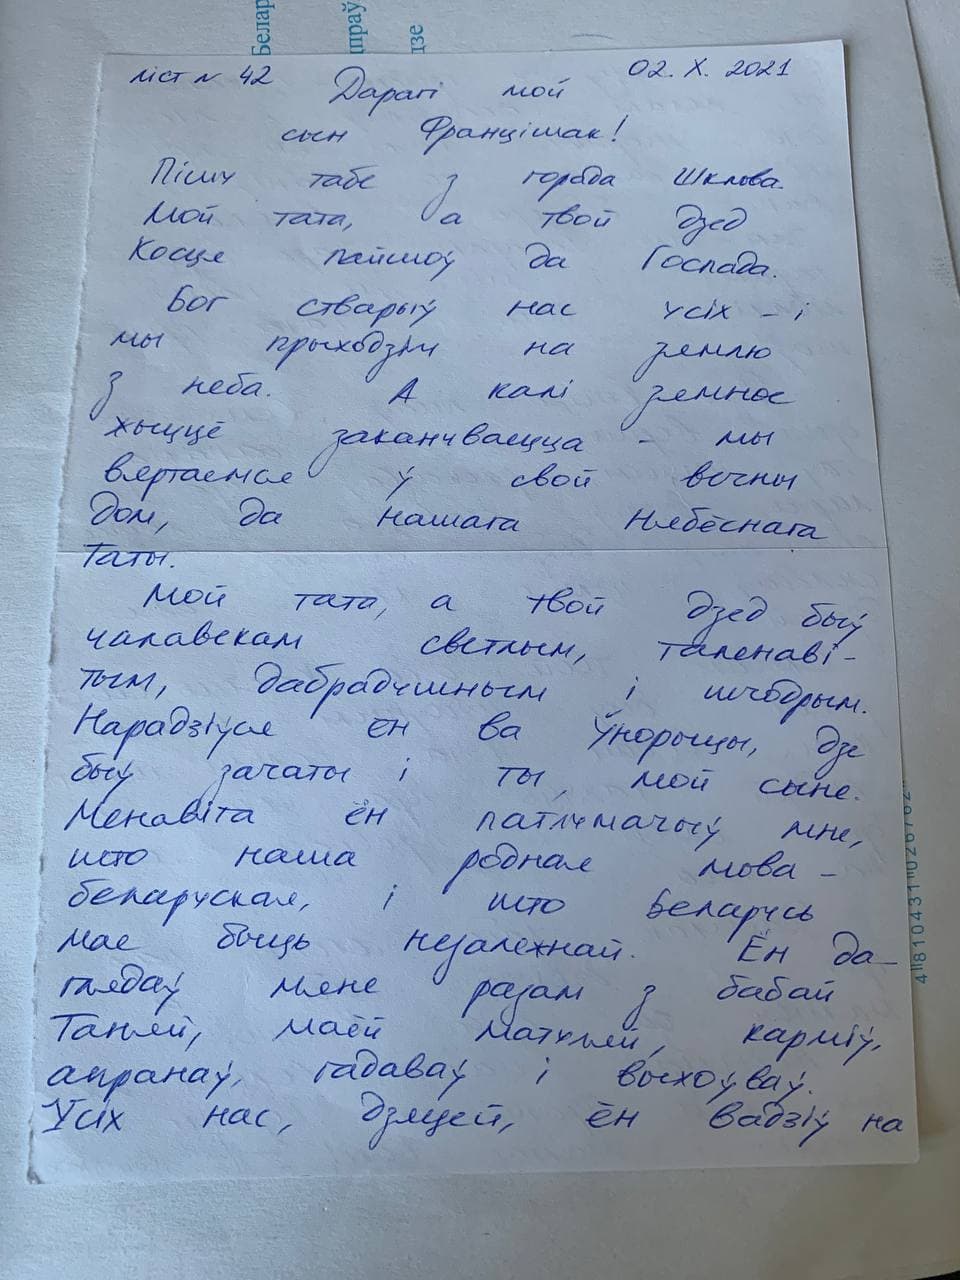 Белар
дзе
ліст № 42
02. X. 2021
Дарагі мой
сын Францішак!
Пішу табе з горада Шклова.
Мой тата, а твой дзед
Косця пайшоў да Госпада.
Бог стварыў нас усіх - і
мы прыходзім на землю
з неба. А калі земнае
жыццё заканчваецца - мы
вяртаемся ў свой вечны
дом, да нашага Нябёснага
Таты.
Мой тата, а твой дзед быў
чалавекам светлым, таленаві-
тым, дабрадушным і шчодрым.
Нарадзіўся ён ва Ўнорыцы, дзе
быў зачаты і ты, мой сыне.
Менавіта ён патлумачыў мне,
што наша родная мова -
беларуская, і што Беларусь
мае быць незалежнай. Ён да-
глядаў мяне разам з бабай
Таняй, маёй матуляй, карміў,
апранаў, гадаваў і выхоўваў.
Усіх нас, дзяцей, ён вадзіў на
4 810431 026762